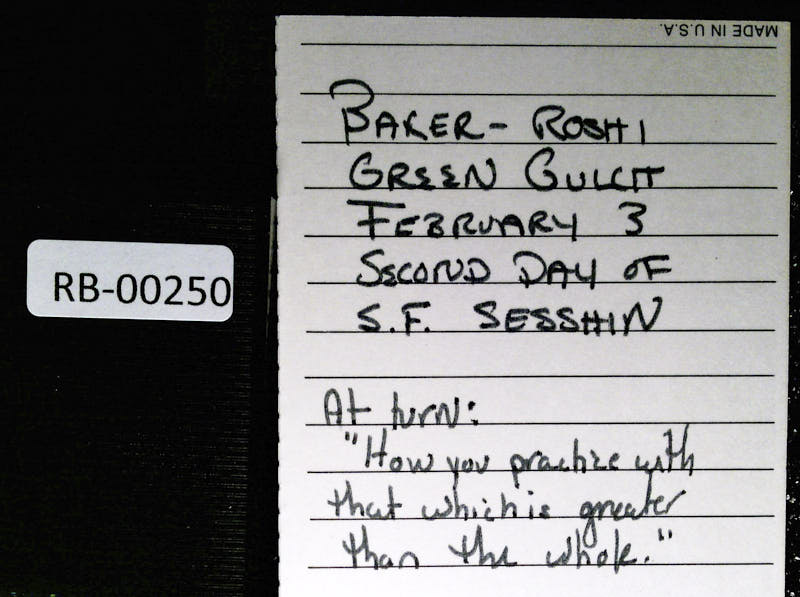 MADE IN U.S.A.
BAKER-ROSHI
GREEN GULCH
FEBRUARY 3
SECOND DAY OF
S.F. SESSHIN
RB-00250
At turn:
"How you practize with
that which is greater
than the whole."